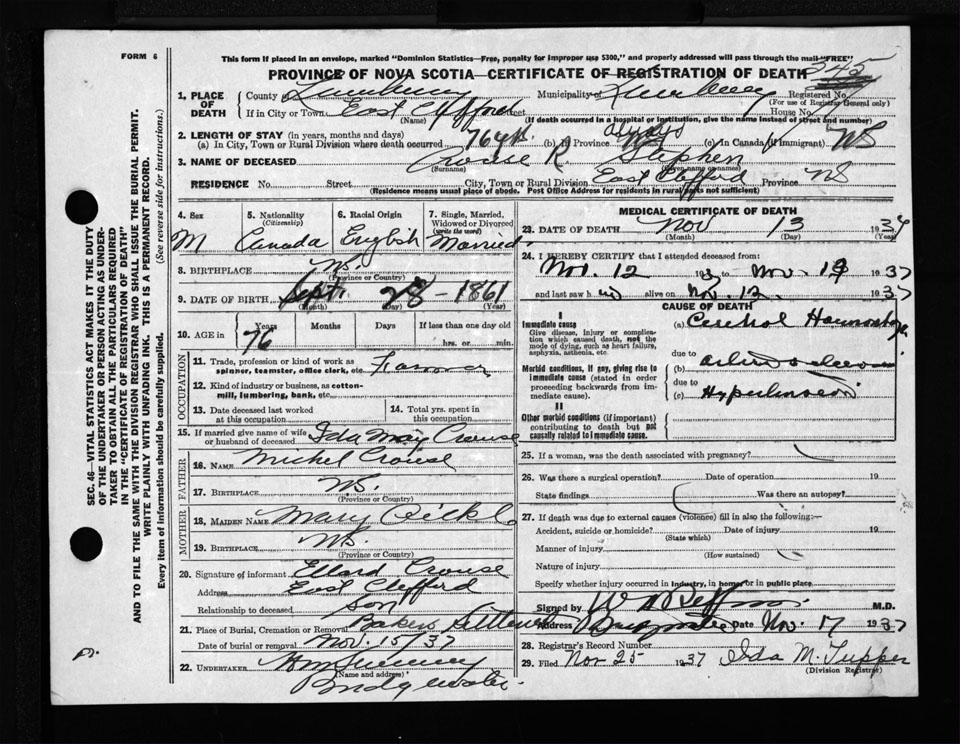 FORM 6
This form if placed in an envelope, marked "Dominion Statistics—Free, penalty for improper use $300," and properly addressed will pass through the mail "FREE"
PROVINCE OF NOVA SCOTIA—CERTIFICATE OF REGISTRATION OF DEATH
1. PLACE OF DEATH County of Lunenburg Municipality of Lunenburg Registered No.
(For use of Registrar General only)
If in City or Town East Clifford Street House No.
(Name) (If death occurred in a hospital or institution, give the name instead of street and number)
2. LENGTH OF STAY (in years, months and days)
(a) In City, Town or Rural Division where death occurred 76 yrs. (b) In Province always NS (c) In Canada (if immigrant) NS
3. NAME OF DECEASED Crouse R. Stephen
(Surname) (Given name or names)
RESIDENCE No. Street City, Town or Rural Division East Clifford Province NS
(Residence means usual place of abode. Post Office Address for residents in rural parts not sufficient)
4. Sex M
5. Nationality (Citizenship) Canada
6. Racial Origin English
7. Single, Married, Widowed or Divorced (write the word) Married
8. BIRTHPLACE NS.
(Province or Country)
9. DATE OF BIRTH Sept. 28 - 1861
(Month) (Day) (Year)
10. AGE in 76 Years Months Days If less than one day old
hrs. or min.
OCCUPATION
11. Trade, profession or kind of work as spinner, teamster, office clerk, etc. Farmer
12. Kind of industry or business, as cotton-mill, lumbering, bank, etc.
13. Date deceased last worked at this occupation
14. Total yrs. spent in this occupation.
15. If married give name of wife or husband of deceased Ida May Crouse
FATHER
16. NAME Michel Crouse
17. BIRTHPLACE NS.
(Province or Country)
MOTHER
18. MAIDEN NAME Mary
19. BIRTHPLACE NS.
(Province or Country)
20. Signature of informant Ellard Crouse
Address East Clifford
Relationship to deceased Son
21. Place of Burial, Cremation or Removal Bakers Settlement
Date of burial or removal Nov. 15/37
22. UNDERTAKER
(Name and address)
Bridgewater
MEDICAL CERTIFICATE OF DEATH
23. DATE OF DEATH Nov 13 1937
(Month) (Day) (Year)
24. I HEREBY CERTIFY that I attended deceased from:
Nov. 12 1937 to Nov. 12 1937
and last saw him alive on Nov. 12 1937
CAUSE OF DEATH
I
Immediate cause
Give disease, injury or complication which caused death, not the mode of dying, such as heart failure, asphyxia, asthenia, etc.
(a) Cerebral Haemorrhage
due to
Morbid conditions, if any, giving rise to immediate cause (stated in order proceeding backwards from immediate cause).
(b) arteriosclerosis
due to
(c) Hypertension
II
Other morbid conditions (if important) contributing to death but not causally related to immediate cause.
25. If a woman, was the death associated with pregnancy?
26. Was there a surgical operation? Date of operation 19
State findings Was there an autopsy?
27. If death was due to external causes (violence) fill in also the following:—
Accident, suicide or homicide? Date of injury 19
(State which)
Manner of injury
(How sustained)
Nature of injury
Specify whether injury occurred in industry, in home or in public place
Signed by M.D.
Address Bridgewater Date Nov. 17 1937
28. Registrar's Record Number
29. Filed Nov 25 1937 Ida M. Tupper
(Division Registrar)
SEC. 46—VITAL STATISTICS ACT MAKES IT THE DUTY
OF THE UNDERTAKER OR PERSON ACTING AS UNDER-
TAKER TO OBTAIN ALL THE PARTICULARS REQUIRED
IN THE "CERTIFICATE OF REGISTRATION OF DEATH"
AND TO FILE THE SAME WITH THE DIVISION REGISTRAR WHO SHALL ISSUE THE BURIAL PERMIT.
WRITE PLAINLY WITH UNFADING INK. THIS IS A PERMANENT RECORD.
Every item of information should be carefully supplied. (See reverse side for instructions.)